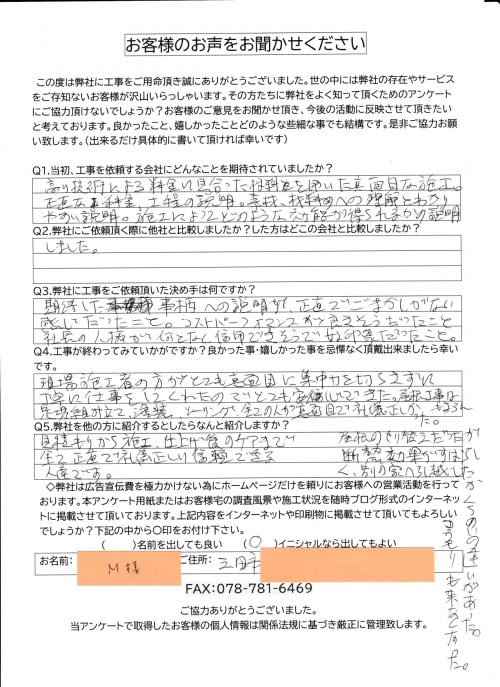 お客様のお声をお聞かせください
この度は弊社に工事をご用命頂き誠にありがとうございました。世の中には弊社の存在やサービス
をご存知ないお客様が沢山いらっしゃいます。その方たちに弊社をよく知って頂くためのアンケート
にご協力頂けないでしょうか？お客様のご意見をお聞かせ頂き、今後の活動に反映させて頂きたい
と考えております。良かったこと、嬉しかったことどのような些細な事でも結構です。是非ご協力お願
い致します。（出来るだけ具体的に書いて頂ければ幸いです）
Q1.当初、工事を依頼する会社にどんなことを期待されていましたか？
高い技術による料金に見合った材料を用いた真面目な施工。
正直な料金、工程の説明。素材、材料への理解とわかり
やすい説明。施工によってどのような効能が得られるかの説明
Q2.弊社にご依頼頂く際に他社と比較しましたか？した方はどこの会社と比較しましたか？
しました。
Q3.弊社に工事をご依頼頂いた決め手は何ですか？
期待した事柄への説明が、正直でごまかしがない
感じだったこと。コストパーフォマンスが良さそうだったこと
社長の人柄が何となく信用できそうで好印象だったこと。
Q4.工事が終わってみていかがですか？良かった事・嬉しかった事を忌憚なく頂戴出来ましたら幸い
です。
現場施工者の方がとても真面目に集中力を切らさずに
丁寧に仕事をしてくれたのでとても安心できた。屋根工事は
足場組み立て、塗装、シーリング、全ての人が真面目で礼儀正しかった。もちろん
Q5.弊社を他の方に紹介するとしたらなんと紹介しますか？
見積もりから施工、仕上げ後のケアまで
全て正直で礼儀正しい信頼できる
人達です。
屋根のふり替えだったが
断熱効果がすばらし
く、別の家へ引越したかくらいのちがいがあった。
こうもりも来なくなった。
◇弊社は広告宣伝費を極力かけない為にホームページだけを頼りにお客様への営業活動を行って
おります。本アンケート用紙またはお客様宅の調査風景や施工状況を随時ブログ形式のインターネッ
トに掲載させて頂いております。上記内容をインターネットや印刷物に掲載させて頂いてもよろしい
でしょうか？下記の中から〇印をお付け下さい。
（　　）名前を出しても良い　（〇）イニシャルなら出してもよい
お名前： M様 ご住所： 三田市
FAX:078-781-6469
ご協力ありがとうございました。
当アンケートで取得したお客様の個人情報は関係法規に基づき厳正に管理致します。